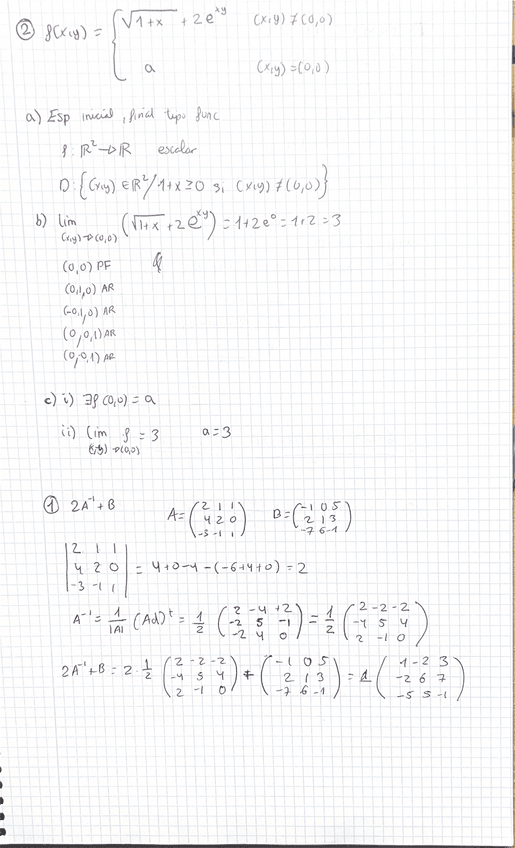 ② f(x,y) = { √(1+x) + 2e^xy (x,y) ≠ (0,0)
a (x,y) = (0,0)
a) Esp inicial, final tipo func
f: R² → R escalar
D: {(x,y) ∈ R² / 1+x ≥ 0 si (x,y) ≠ (0,0)}
b) lim (x,y)→(0,0) (√(1+x) + 2e^xy) = 1+2e⁰ = 1+2 = 3
(0,0) PF
(0,1,0) AR
(-0,1,0) AR
(0,0,1) AR
(0,-0,1) AR
c) i) ∃f(0,0) = a
ii) lim (x,y)→(0,0) f = 3 a = 3
① 2A⁻¹ + B A = (2 1 1 / 4 2 0 / -3 -1 1) B = (-1 0 5 / 2 1 3 / -7 6 -1)
|2 1 1|
|4 2 0| = 4+0-4-(-6+4+0) = 2
|-3 -1 1|
A⁻¹ = 1/|A| (Ad)ᵗ = 1/2 (2 -4 +2 / -2 5 -1 / -2 4 0) = 1/2 (2 -2 -2 / -4 5 4 / 2 -1 0)
2A⁻¹ + B = 2 · 1/2 (2 -2 -2 / -4 5 4 / 2 -1 0) + (-1 0 5 / 2 1 3 / -7 6 -1) = 1 (1 -2 3 / -2 6 7 / -5 5 -1)